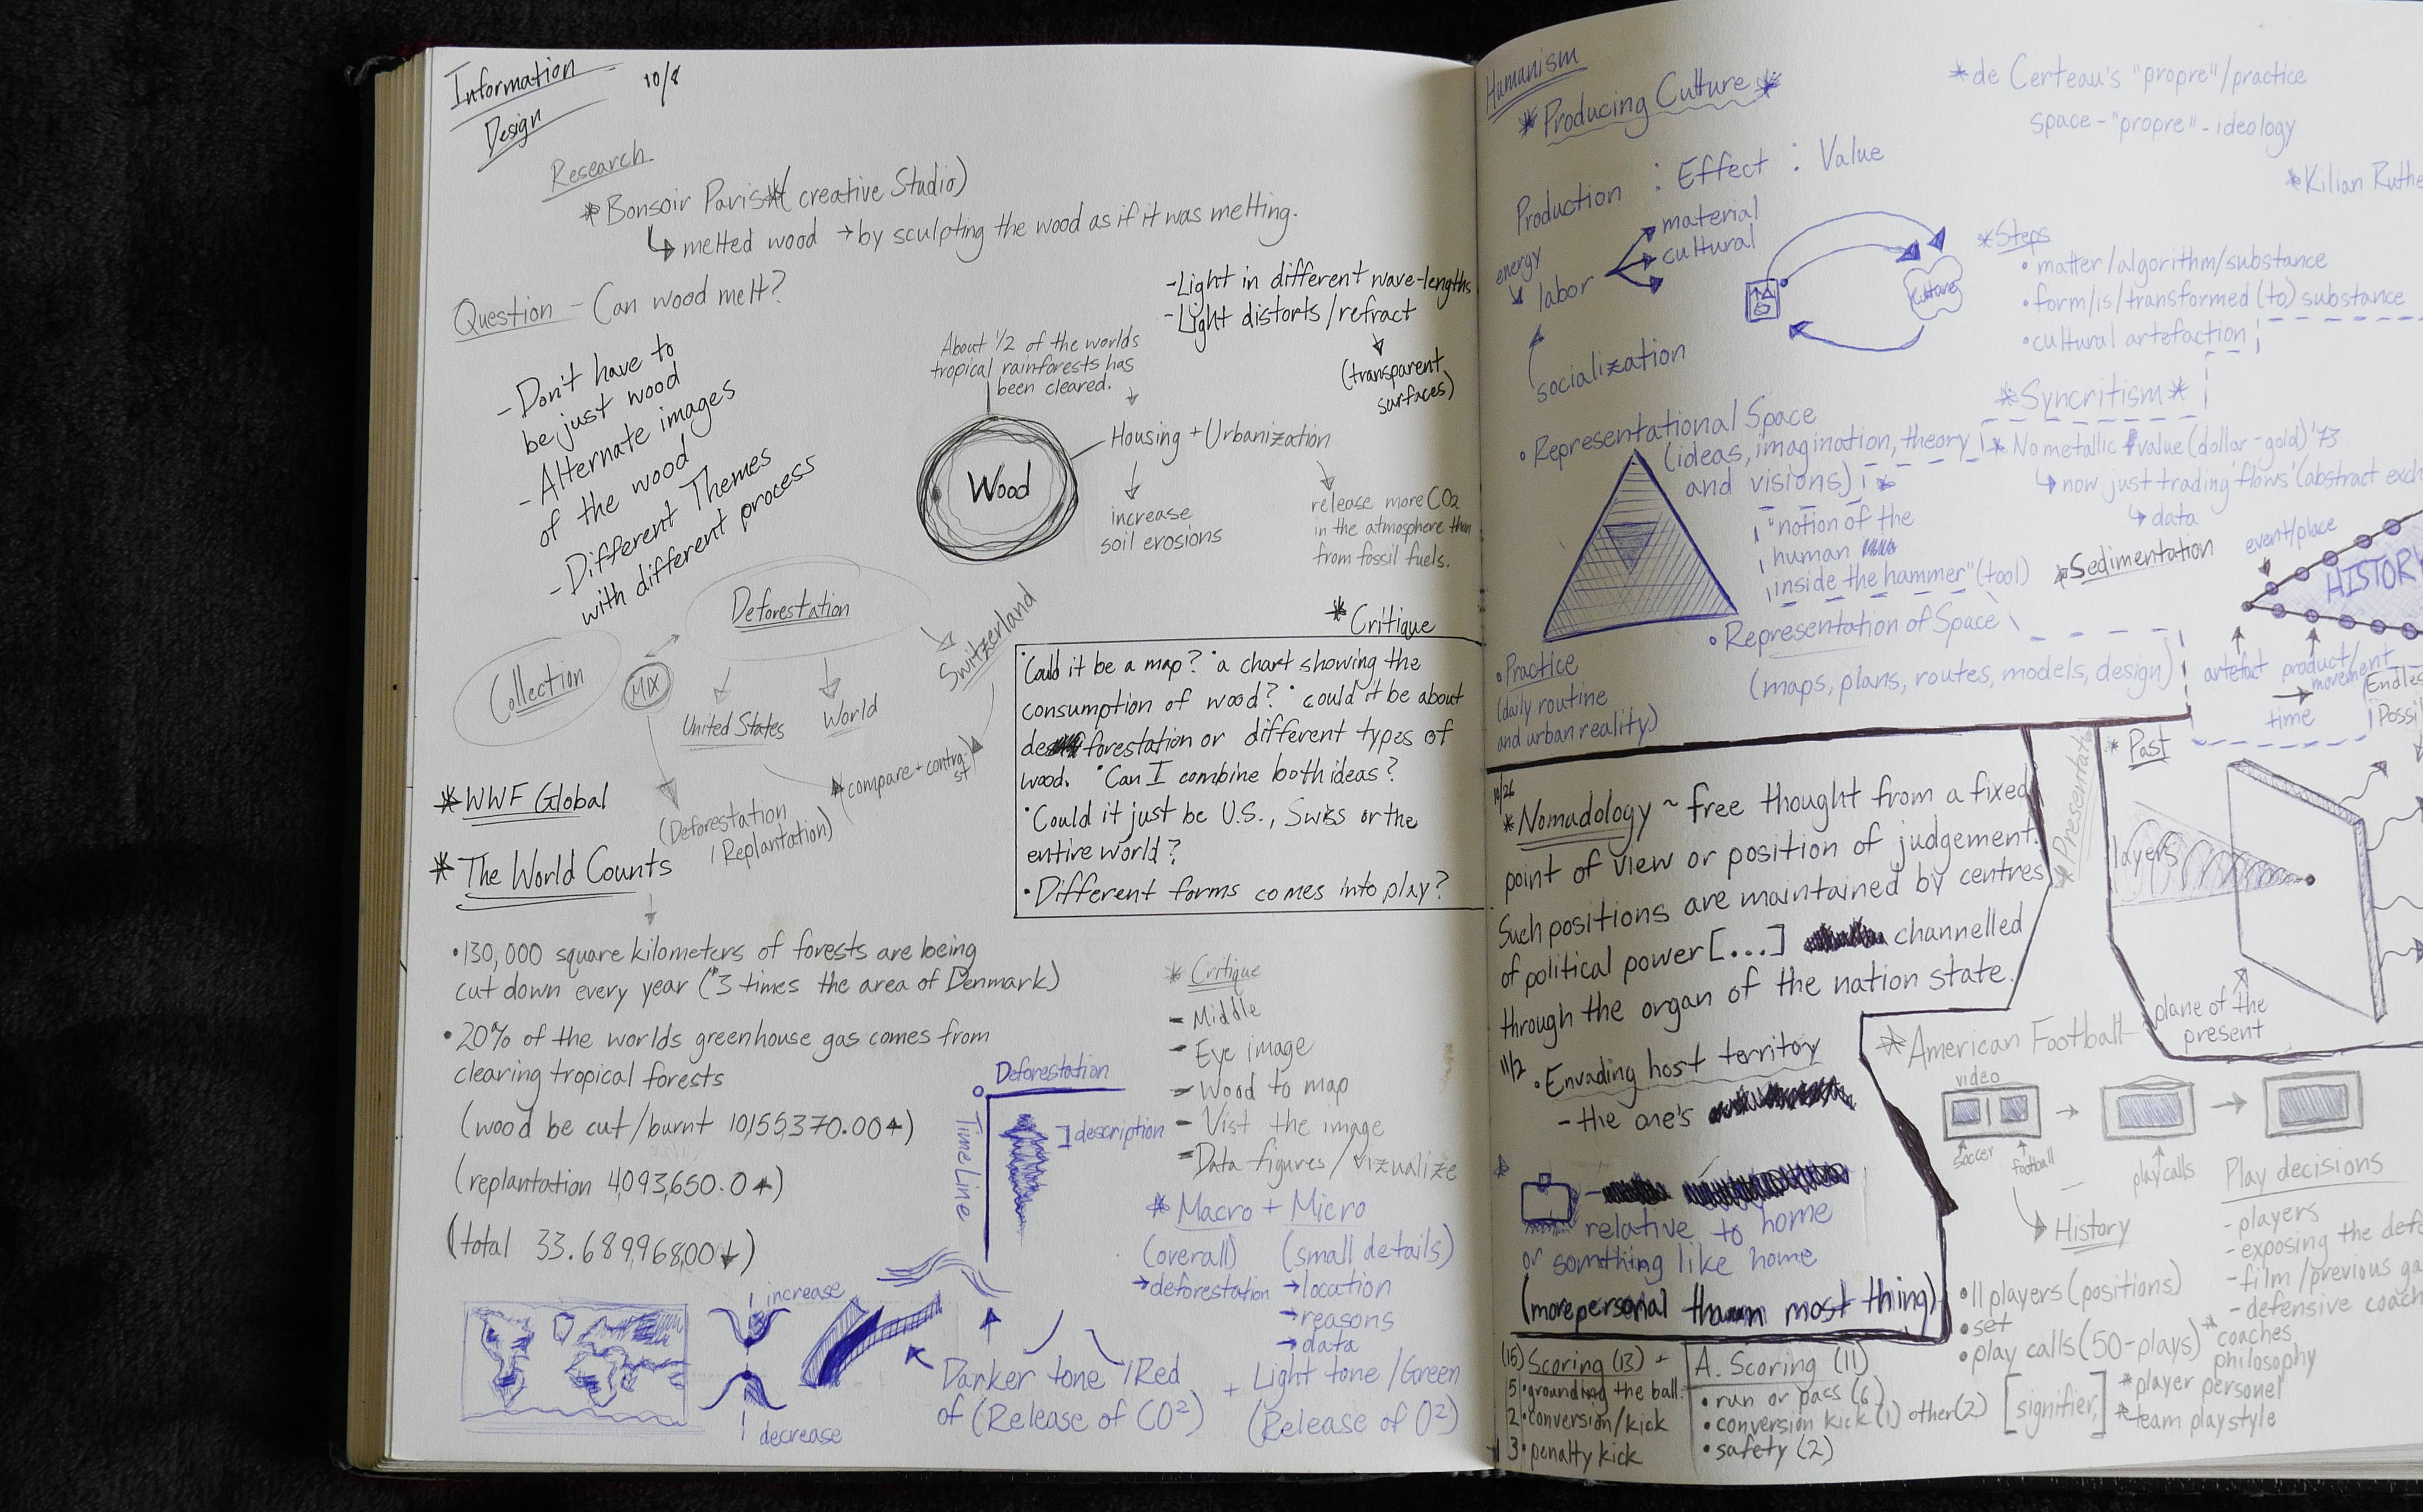 Information
Design
10/8
Research
*Bonsoir Paris*(creative Studio)
↳ melted wood → by sculpting the wood as if it was melting.
Question - Can wood melt?
- Don't have to
be just wood
- Alternate images
of the wood
- Different Themes
with different process
- Light in different wave-lengths
- Light distorts/refract
(transparent
surfaces)
About 1/2 of the worlds
tropical rainforests has
been cleared.
Wood
Housing + Urbanization
increase
soil erosions
release more CO2
in the atmosphere than
from fossil fuels.
Deforestation
Collection
MIX
United States
World
Switzerland
(compare + contra
st)
(Deforestation
/ Replantation)
* Critique
•Could it be a map? •a chart showing the
consumption of wood? •could it be about
deforestation or different types of
wood. •Can I combine both ideas?
•Could it just be U.S., Swiss or the
entire world?
•Different forms comes into play?
*WWF Global
* The World Counts
•130,000 square kilometers of forests are being
cut down every year ("3 times the area of Denmark)
•20% of the worlds greenhouse gas comes from
clearing tropical forests
(wood be cut/burnt 10,155,370.00↑)
(replantation 4,093,650.0↑)
(total 33.689,968,00↓)
* Critique
- Middle
- Eye image
- Wood to map
- Vist the image
- Data figures/vizualize
Deforestation
TimeLine
description
* Macro + Micro
(overall) (small details)
→deforestation →location
→reasons
→data
increase
decrease
Darker tone /Red + Light tone /Green
of (Release of CO²) (Release of O²)
Humanism
*Producing Culture*
Production : Effect : Value
energy
labor
material
cultural
socialization
culture
*de Certeau's "propre"/practice
space-"propre"-ideology
*Kilian
*Steps
•matter/algorithm/substance
•form/is/transformed (to) substance
•cultural artefaction
*Syncritism*
•Representational Space
(ideas, imagination, theory
and visions)
"notion of the
human
inside the hammer" (tool)
* No metallic value (dollar-gold) '73
↳ now just trading 'flows' (abstract
↳ data
•Representation of Space
(maps, plans, routes, models, design)
•Practice
(daily routine
and urban reality)
*Sedimentation
event/place
HISTORY
artefact
product/
movement
time
10/26
*Nomadology ~ free thought from a fixed
point of view or position of judgement.
Such positions are maintained by centres
of political power [...] channelled
through the organ of the nation state.
11/2
•Envading host territory
- the one's
relative to home
or something like home
(more personal than most thing)
* Past
layers
plane of the
present
*American Football
video
soccer
football
playcalls
History
•11 players (positions)
•set
•play calls (50-plays)
Play decisions
- players
- exposing the
- film/previous
- defensive
*coaches
philosophy
*player personel
*team playstyle
(15) Scoring (13)
5 •grounding the ball
2 •conversion/kick
3 •penalty kick
A. Scoring (11)
•run or pass (6)
•conversion kick (1) other (2)
•safety (2)
[signifier,]